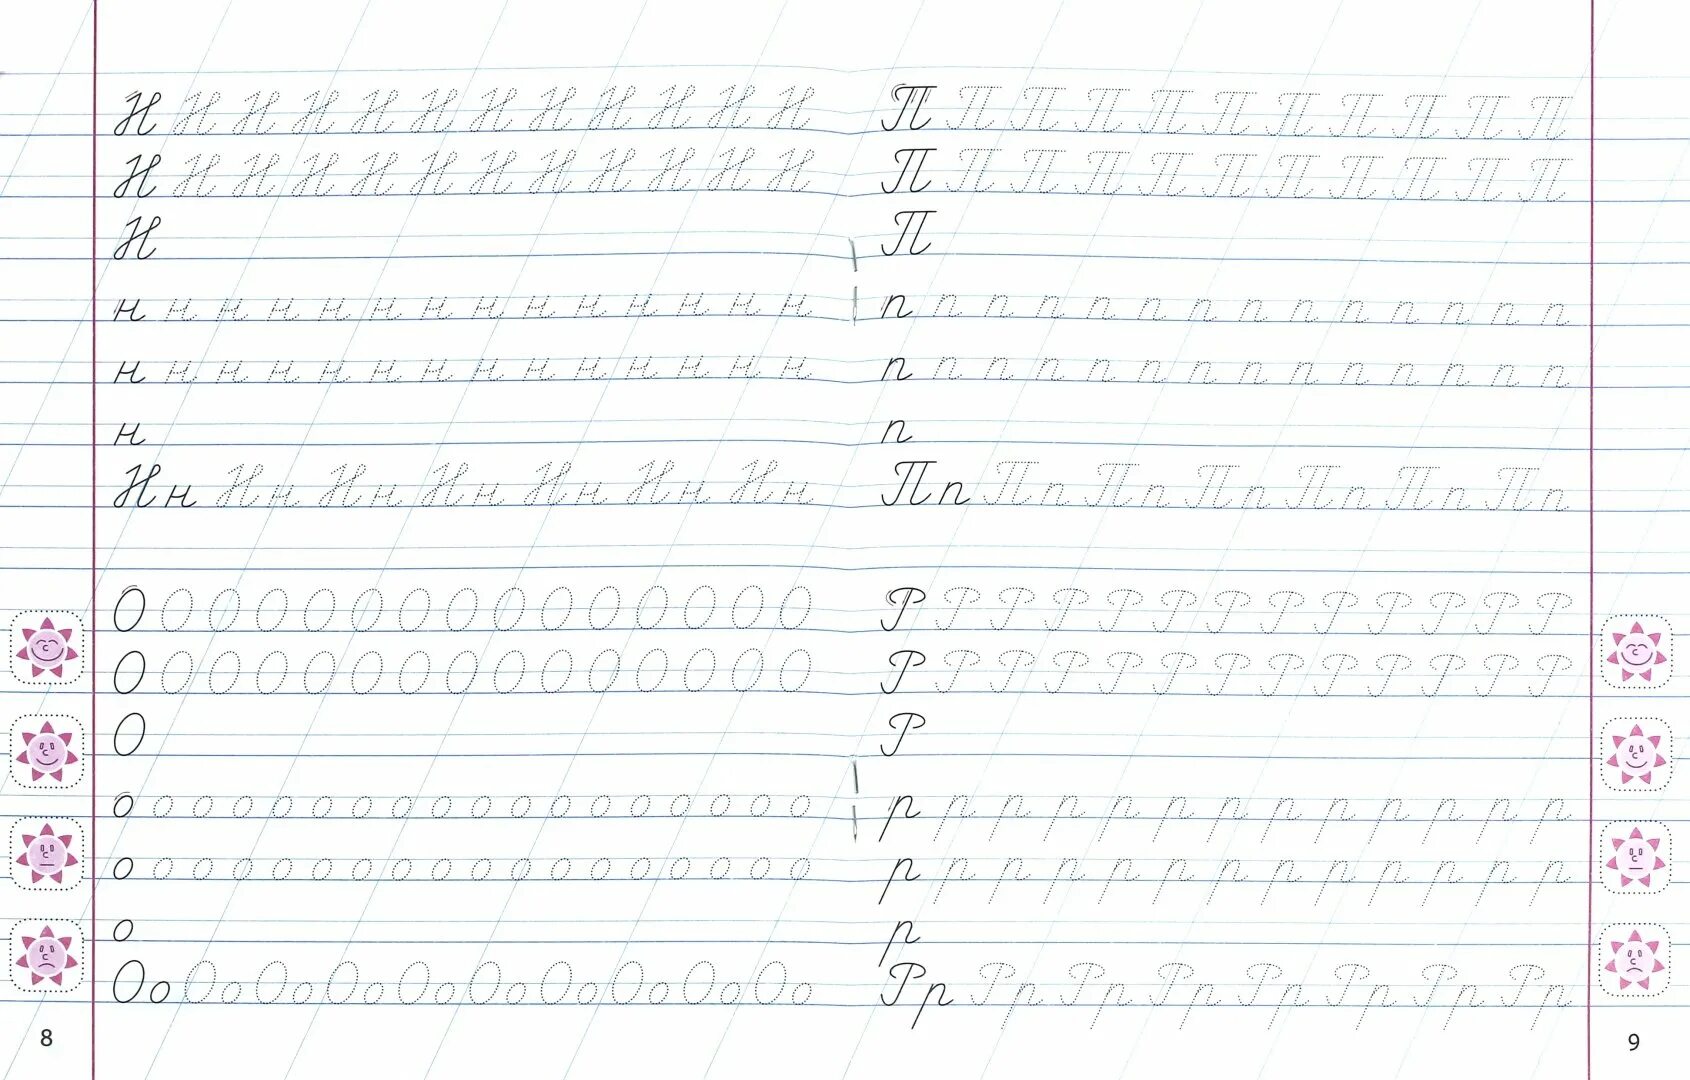 Н Н Н Н Н Н Н Н Н Н Н Н
Н Н Н Н Н Н Н Н Н Н Н Н
Н
н н н н н н н н н н н н н н
н н н н н н н н н н н н н н
н
Нн Нн Нн Нн Нн Нн Нн
О О О О О О О О О О О О О О О
О О О О О О О О О О О О О О О
О
о о о о о о о о о о о о о о о о о о
о о о о о о о о о о о о о о о о о о
о
Оо Оо Оо Оо Оо Оо Оо Оо Оо Оо
8
П П П П П П П П П П П
П П П П П П П П П П П
П
п п п п п п п п п п п п п п
п п п п п п п п п п п п п п
п
Пп Пп Пп Пп Пп Пп Пп
Р Р Р Р Р Р Р Р Р Р Р Р Р
Р Р Р Р Р Р Р Р Р Р Р Р Р
Р
р р р р р р р р р р р р р
р р р р р р р р р р р р р
р
Рр Рр Рр Рр Рр Рр Рр Рр
9